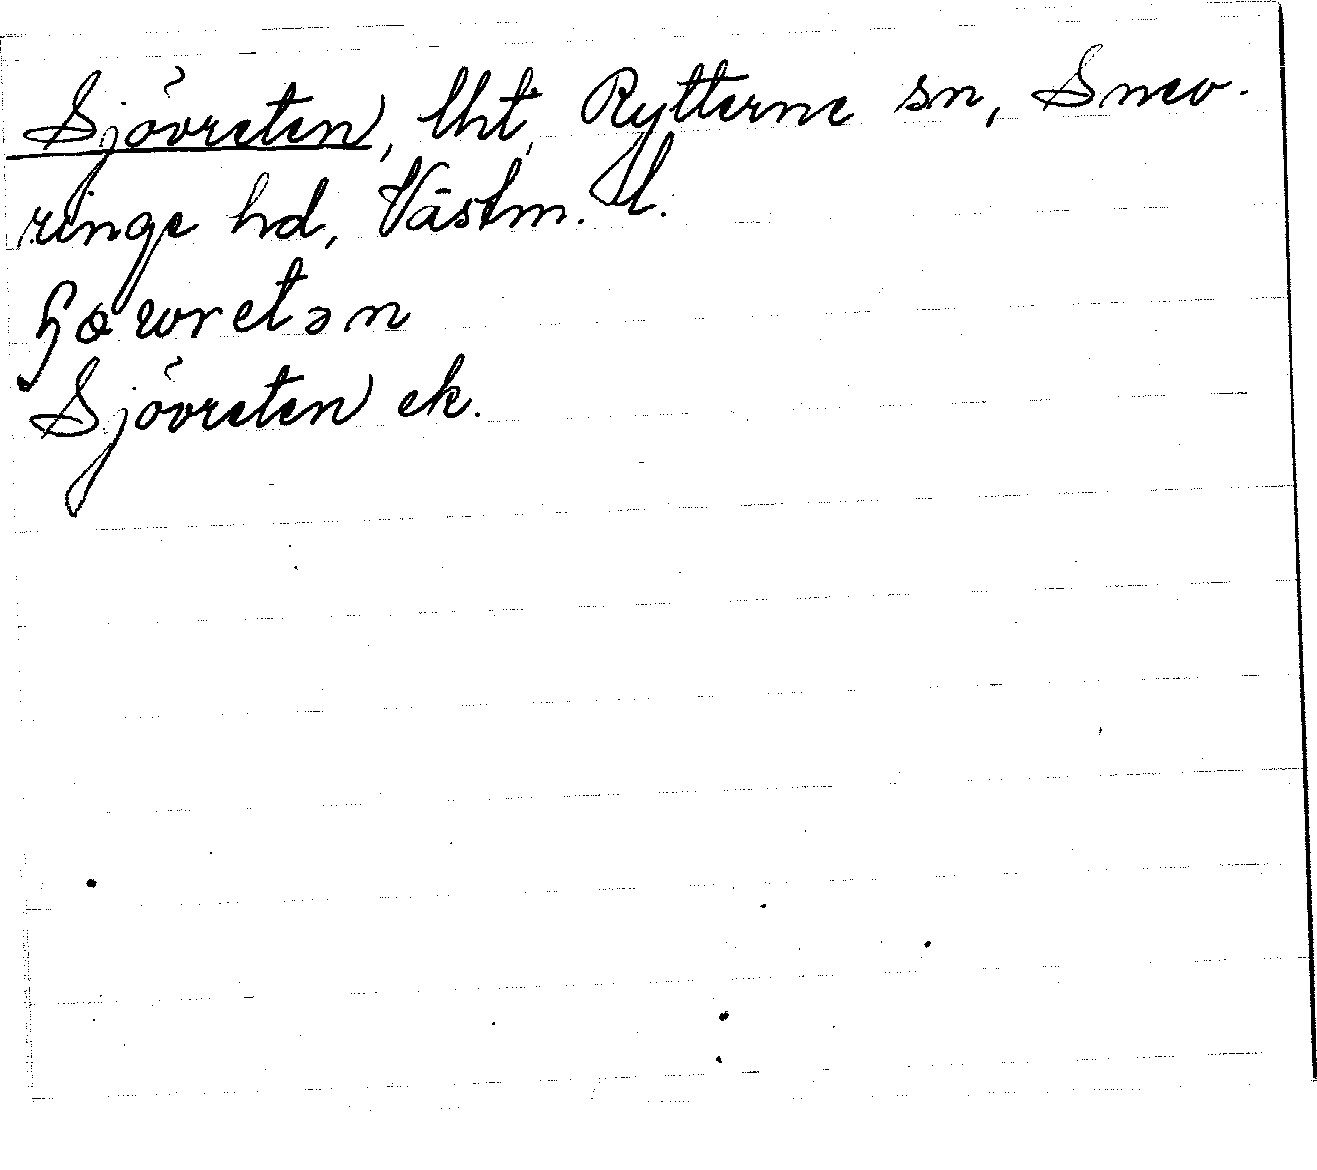 Sjövreten, lht, Rytterne sn, Snev-
ringe hd, Västm. l.
Sjövreten ek.